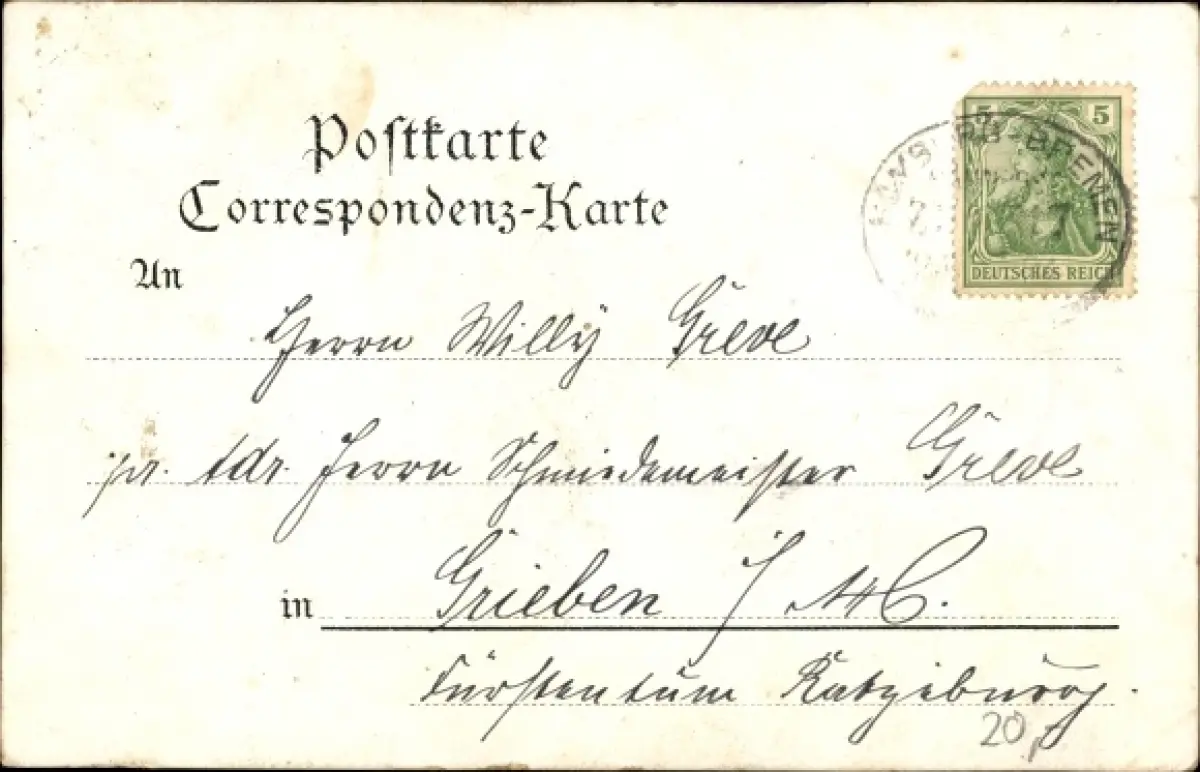 Postkarte
Correspondenz-Karte
5 5
HAMBURG-BREMEN
7
DEUTSCHES REICH
An
Herrn Willÿ Greve
pr. Adr. Herrn Schmiedemeister Greve
in Grieben i/M.
Fürstentum Ratzeburg.
20